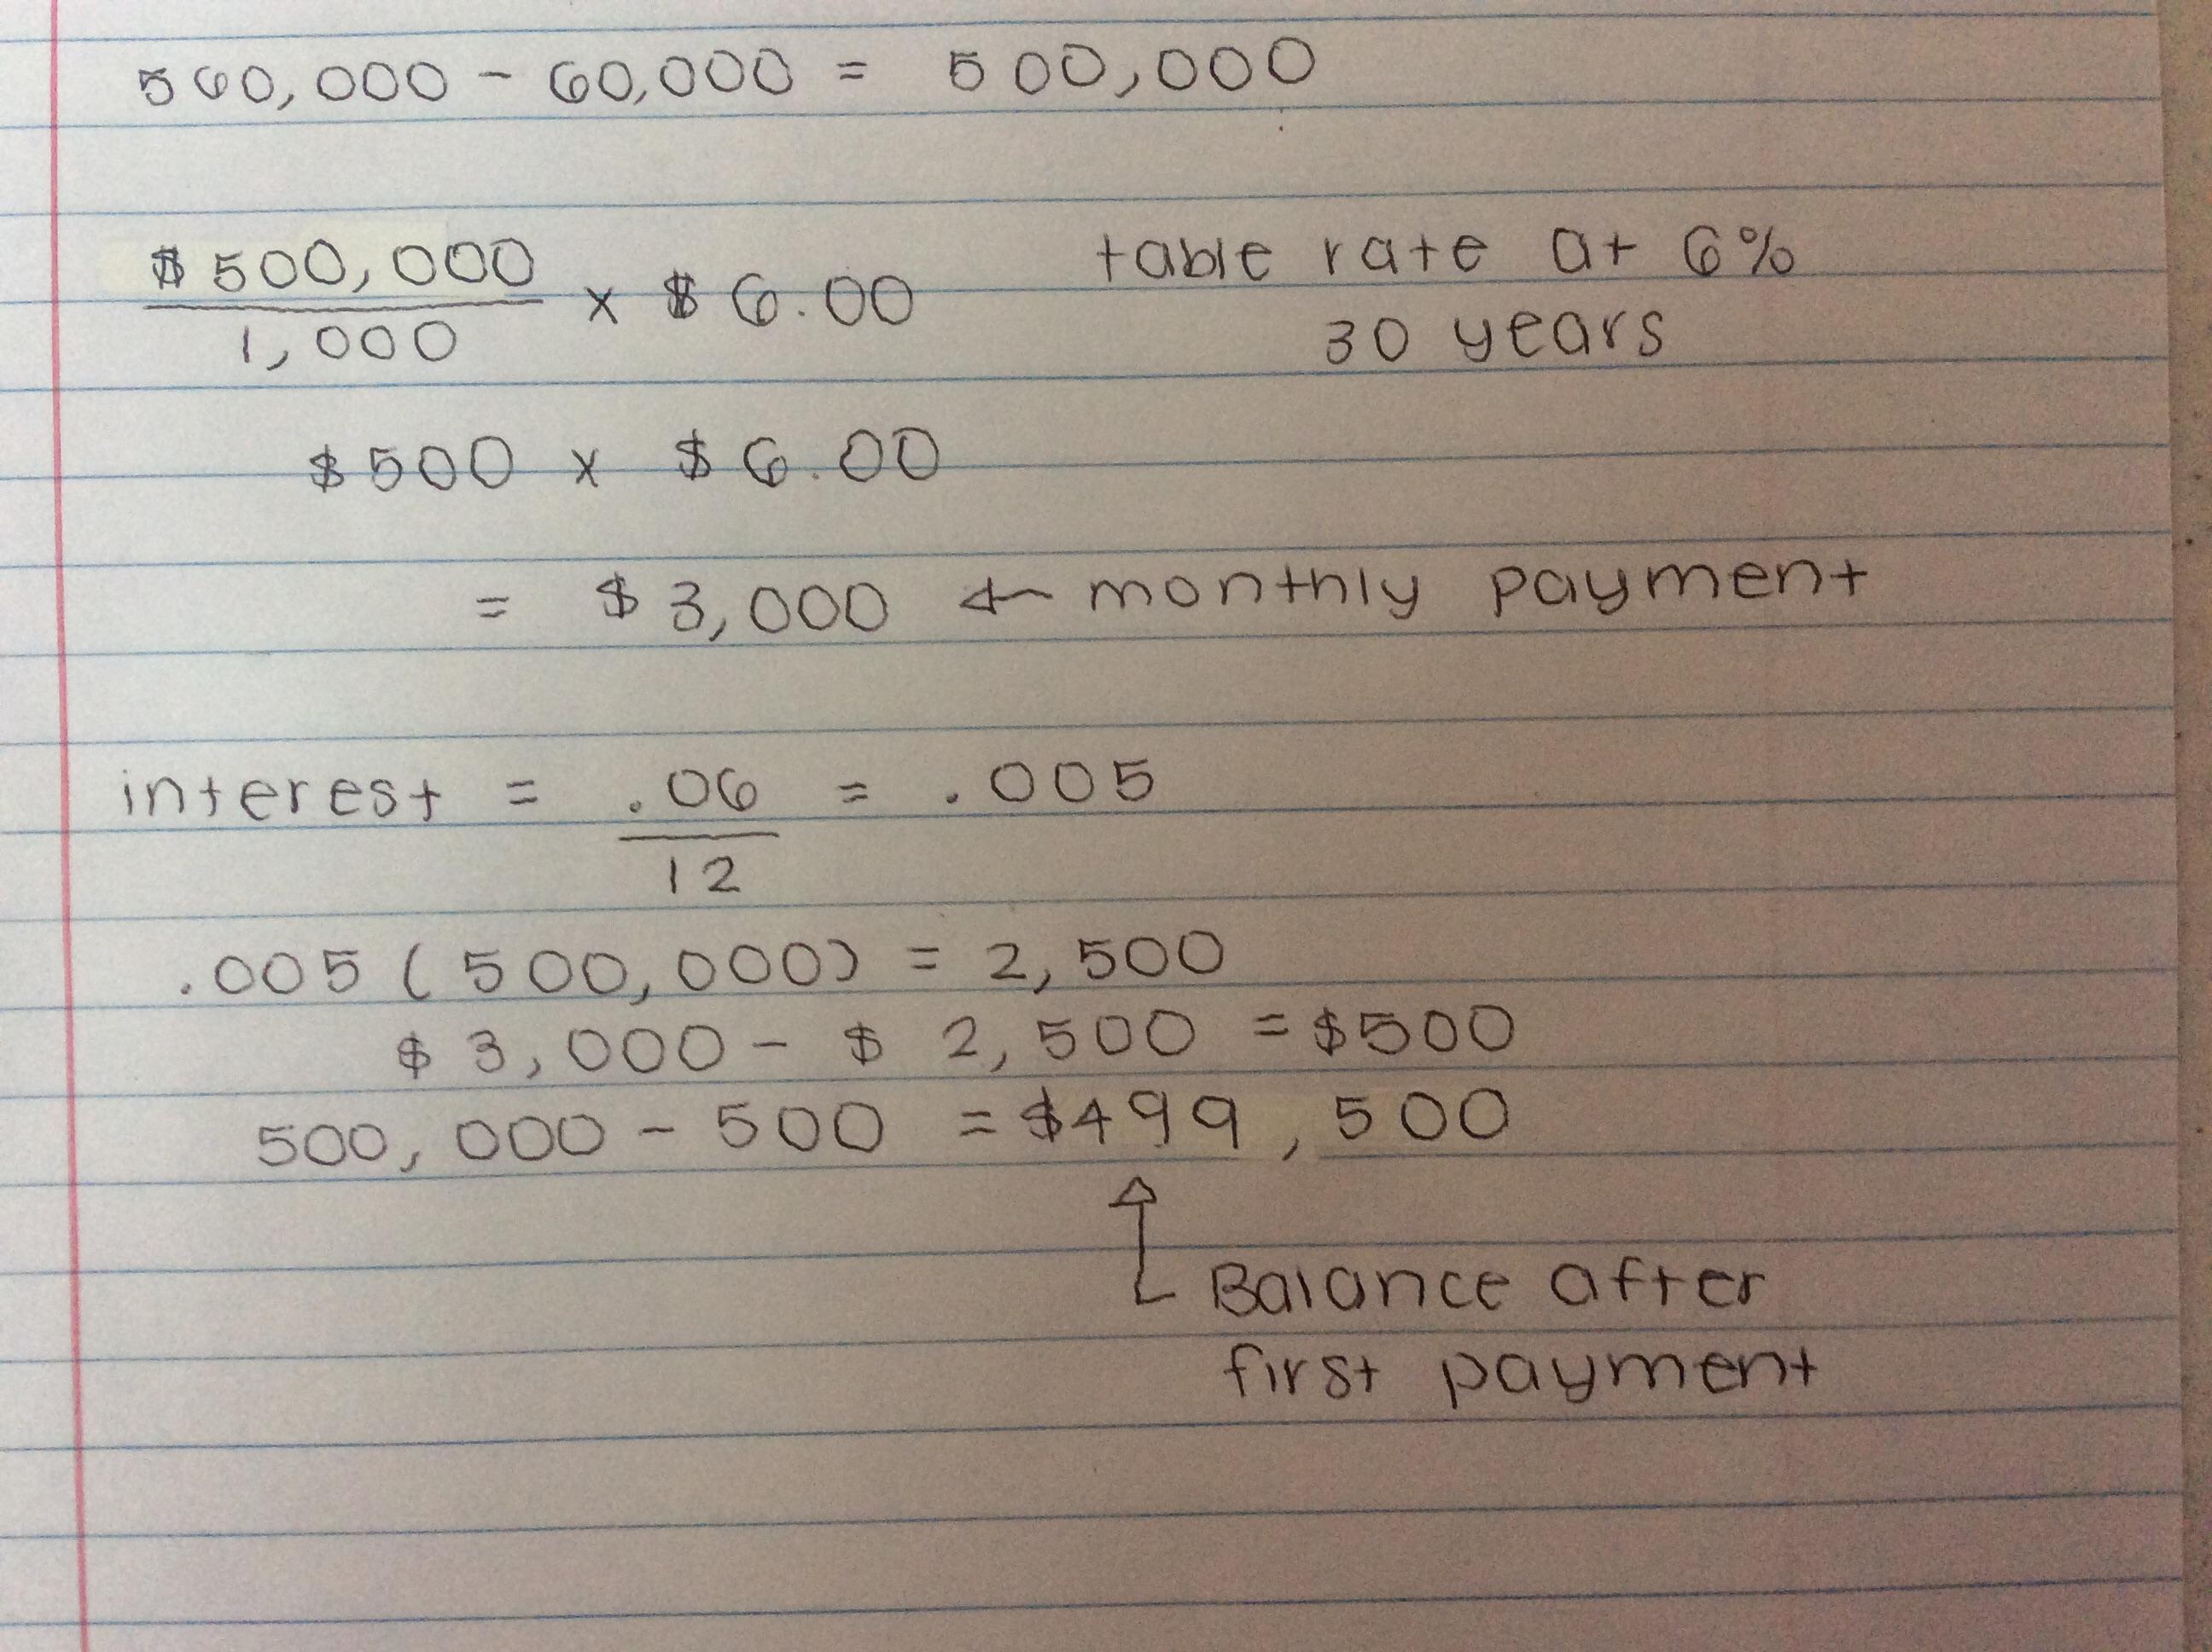 560,000 - 60,000 = 500,000
$500,000 / 1,000 x $6.00 table rate at 6%
30 years
$500 x $6.00
= $3,000 ← monthly payment
interest = .06 / 12 = .005
.005 (500,000) = 2,500
$3,000 - $2,500 = $500
500,000 - 500 = $499,500
Balance after
first payment